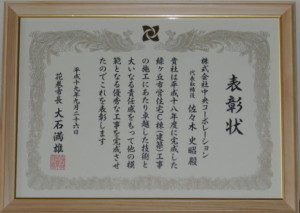 表彰状
株式会社中央コーポレーション
代表取締役 佐々木 史昭 殿
貴社は平成十八年度に完成した
緑ヶ丘市営住宅C棟(建築)工事
の施工にあたり卓越した技術と
大いなる責任感をもって他の模
範となる優秀な工事を完成させ
たのでこれを表彰します
平成十九年九月二十六日
花巻市長 大石満雄